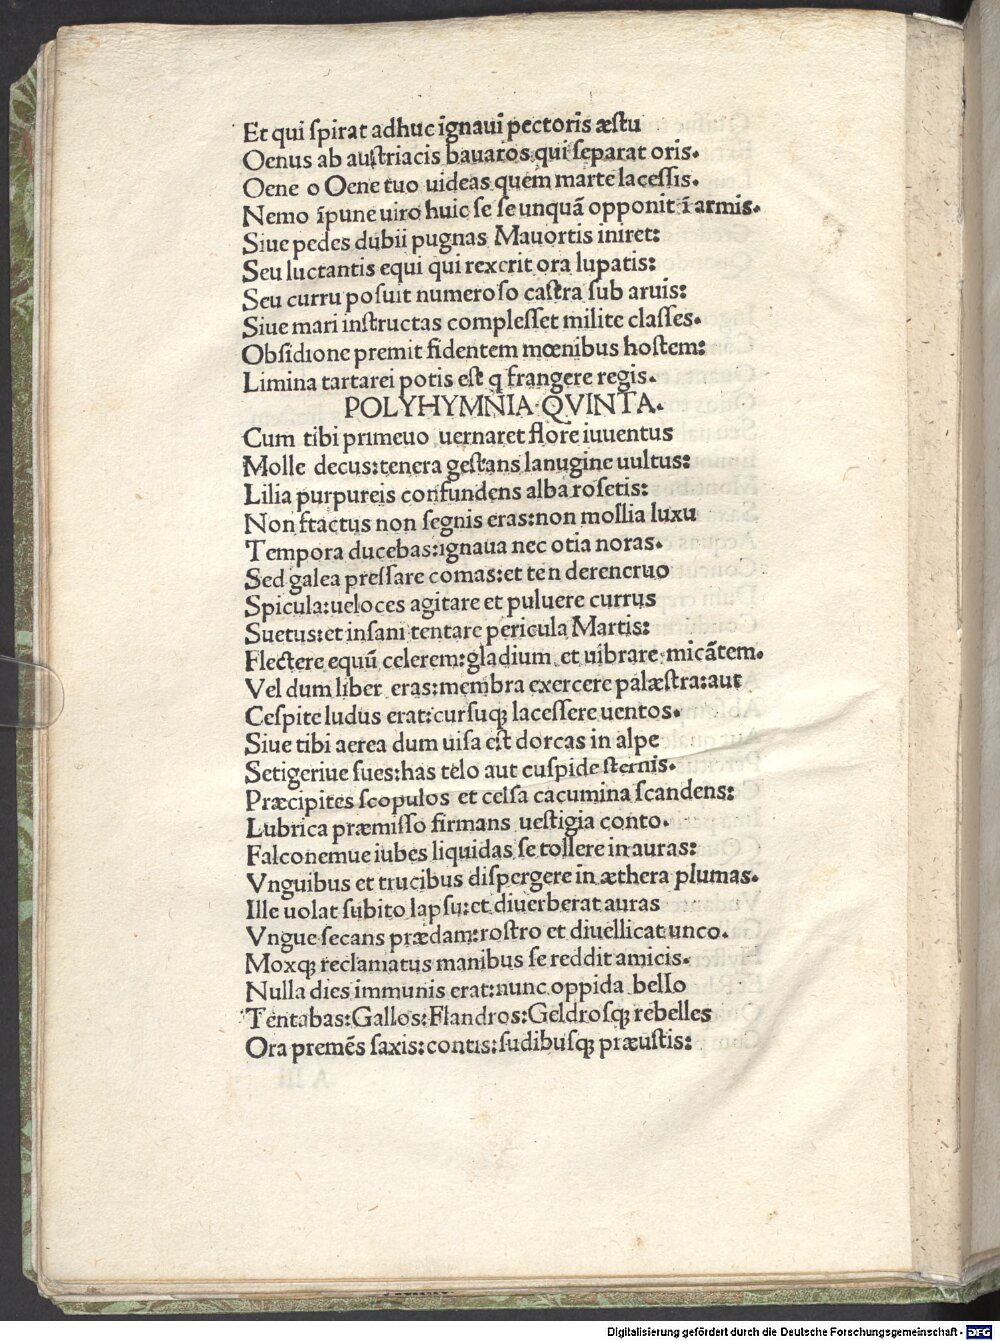 Et qui ſpirat adhuc īgnaui pectoris æſtu
Oenus ab auſtriacis bauaros qui ſeparat oris.
Oene o Oene tuo uideas quem marte laceſſis.
Nemo īpune uiro huic ſe ſe unquā opponit ī armis.
Siue pedes dubii pugnas Mauortis iniret:
Seu luctantis equi qui rexerit ora lupatis:
Seu curru poſuit numeroſo caſtra ſub aruis:
Siue mari inſtructas compleſſet milite claſſes.
Obſidione premit fidentem mœnibus hoſtem:
Limina tartarei potis eſt q frangere regis.
POLYHYMNIA QVINTA.
Cum tibi primeuo uernaret flore iuuentus
Molle decus:tenera geſtans lanugine uultus:
Lilia purpureis confundens alba roſetis:
Non fractus non ſegnis eras:non mollia luxu
Tempora ducebas:ignaua nec otia noras.
Sed galea preſſare comas:et ten derencruo
Spicula:ueloces agitare et puluere currus
Suetus:et inſani tentare pericula Martis:
Flectere equū celerem:gladium et uibrare micātem.
Vel dum liber eras:membra exercere palæſtra:aut
Ceſpite ludus erat:curſuqꝫ laceſſere uentos.
Siue tibi aerea dum uiſa eſt dorcas in alpe
Setigeriue ſues:has telo aut cuſpide ſternis.
Præcipites ſcopulos et celſa cacumina ſcandens:
Lubrica præmiſſo firmans ueſtigia conto.
Falconemue iubes liquidas ſe tollere in auras:
Vnguibus et trucibus diſpergere in æthera plumas.
Ille uolat ſubito lapſu:et diuerberat auras
Vngue ſecans prædam:roſtro et diuellicat unco.
Moxqꝫ reclamatus manibus ſe reddit amicis.
Nulla dies immunis erat:nunc oppida bello
Tentabas:Gallos:Flandros:Geldroſqꝫ rebelles
Ora premēs ſaxis:contis:ſudibuſqꝫ præuſtis:
Digitalisierung gefördert durch die Deutsche Forschungsgemeinschaft - DFG